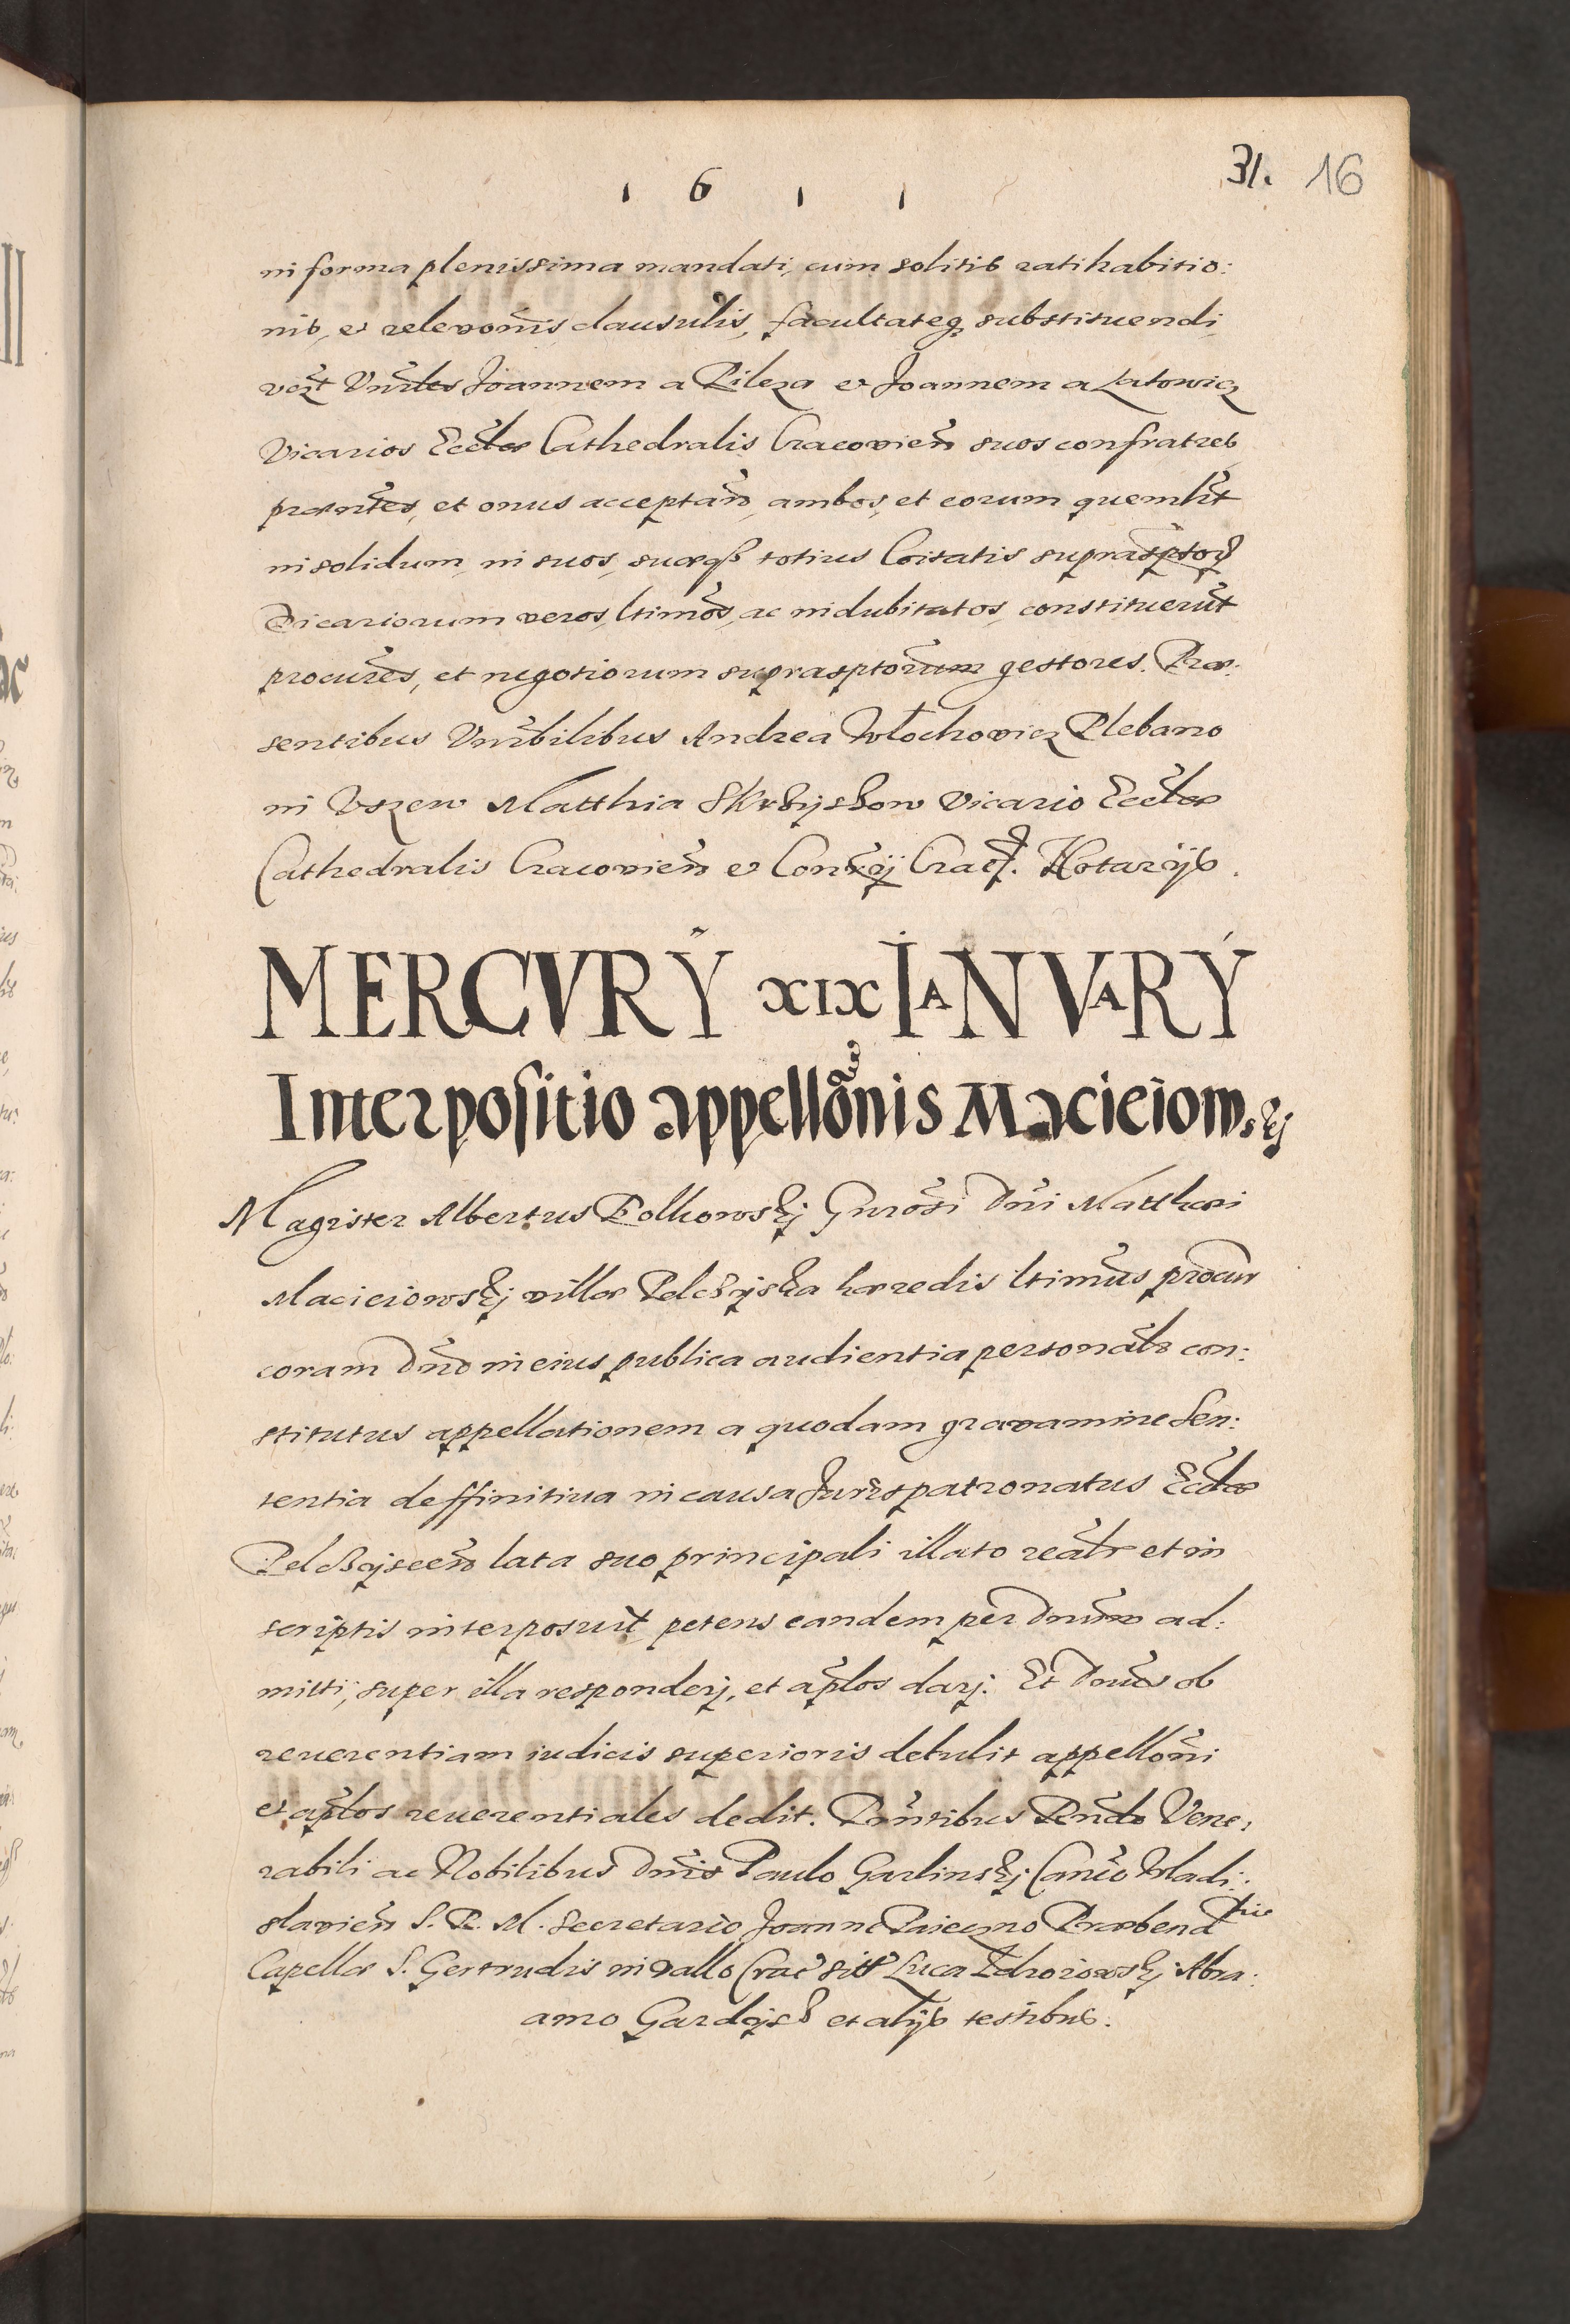 1 6 1 1
31. 16
in forma plenissima mandati, cum solitis ratihabitio:
nib, et relevonis clausulis, facultateq substituendi,
vczt Vnrles Joannem a Pilcza et Joannem a Latowicz
Vicarios Eccłae Cathedralis Cracovień suos confratres
prantes, et onus acceptań, ambos, et eorum quemlit
in solidum, in suos, suaeq totius Coitatis suprasptor
Vicariorum veros, ltimos, ac indubitatos, constituerut
procures, et negotiorum suprasptorum gestores. Prae:
sentibus Vnrbilibus Andrea Włochowicz Plebano
in Vszew Matthia Skrbysch ow Vicario Eccłae
Cathedralis Cracovień et Conrÿ Crac. Notarijs.
MERCVRŸ XIX IANVARY
Interpositio appellonis Macieiowskj
Magister Albertus Polkowskj Gnrosi Dni Matthaei
Macieiowskj villae Pelczyska haeredis ltimus procur
coram Dno in eius publica audientia personałr con:
stitutus appellationem a quodam gravamine Sen:
tentia deffinitiva in causa Jurispatronatus Eccłae
Pelczyscen lata suo principali illato reałr et in
scriptis interposuit, petens eandem per Dnum ad:
mitti, super illa responderj, et aplos darj. Et Dnus ob
reverentiam iudicis superioris detulit appelloni
et aplos reverentiales dedit. Pntibus Rndo Vene:
rabili ac Nobilibus Dnis Paulo Garlinskj Canco Wladi:
slavień S. R. M. Secretario Joanne Praebendrio
Capellae S. Gertrudis in vallo Crac sitt Luca Zdroiowskj Abra:
amo Gardysch et alijs testibus.